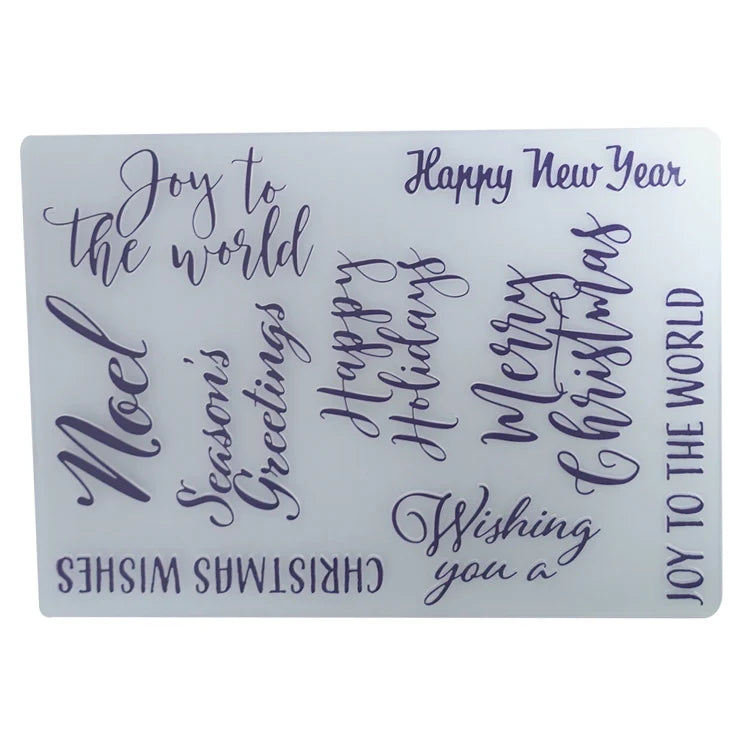 Joy to
the world
Happy New Year
Noel
Season's
Greetings
Happy
Holidays
Merry
Christmas
JOY TO THE WORLD
Wishing
you a
CHRISTMAS WISHES